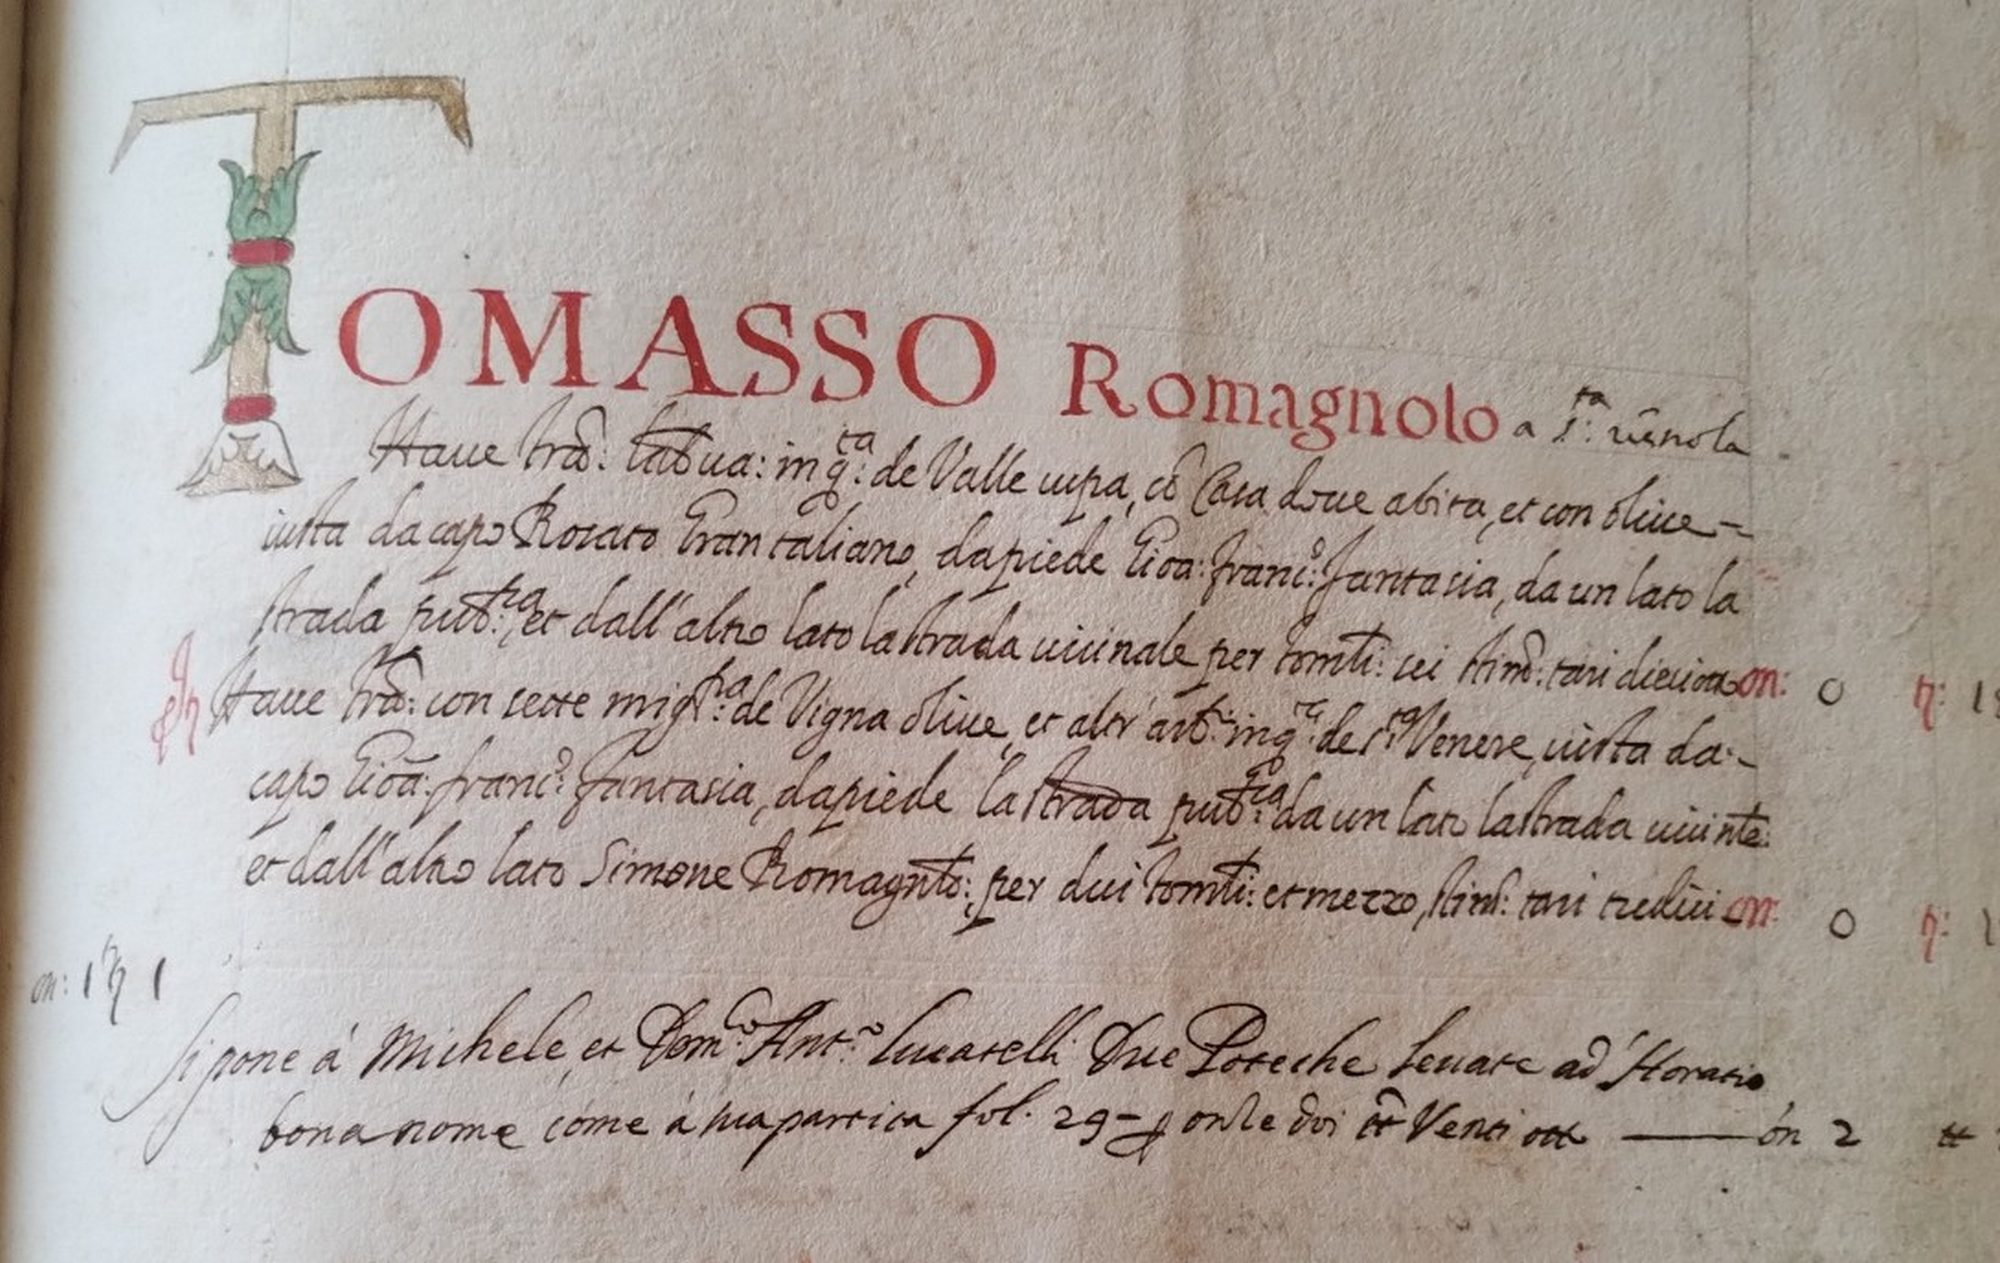 TOMASSO Romagnolo a S.ta vēnola
Haue trā: lab̄ua: in q.ta: de Valle cupa, cō Casa doue abita, et con oliue
iusta da capo Rosato Grantaliano, da piede Gioa: franc.o: fantasia, da un lato la
strada pub.ca: et dall'altro lato la strada uicinale per tom̄ti: sei stim̄: tari dieci on: 0
Haue trā: con sette mig.ra: de Vigna oliue, et altr'arb: in q.ta: de S.ta Venere, iusta da
capo Gioā: franc.o: fantasia, da piede la strada pub.ca: da un lato la strada uicinte:
et dall'altro lato Simone Romagnto: per dui tom̄ti: et mezzo, stim̄: tari tredici on: 0
on: 1 1
Si pone á Michele, et Dom.co Ant.o Lucatelli Due Poteche leuate ad Horatio
bona nome come á sua partita fol. 29 onze doi Venti on 2